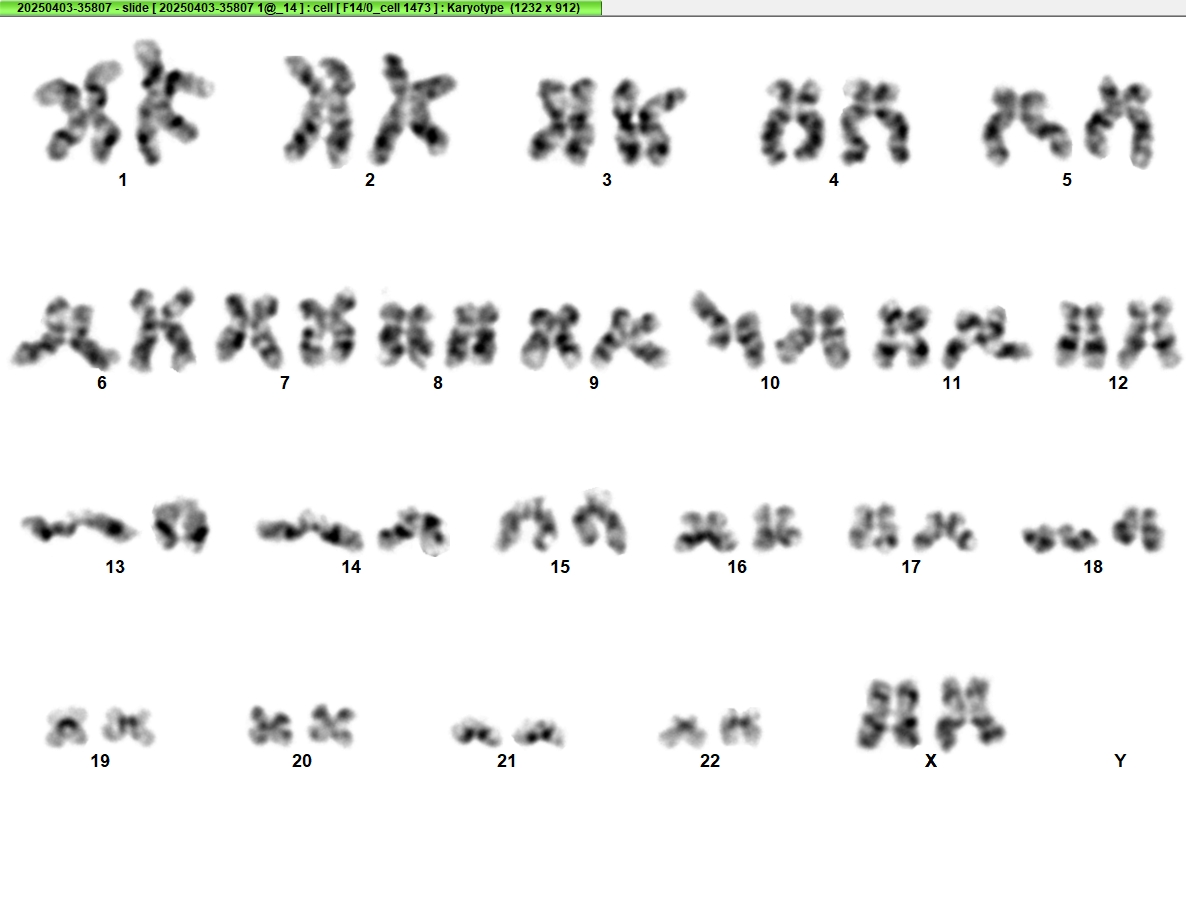 20250403-35807 - slide [ 20250403-35807 1@_14 ] : cell [ F14/0_cell 1473 ] : Karyotype (1232 x 912)
1 2 3 4 5
6 7 8 9 10 11 12
13 14 15 16 17 18
19 20 21 22 X Y